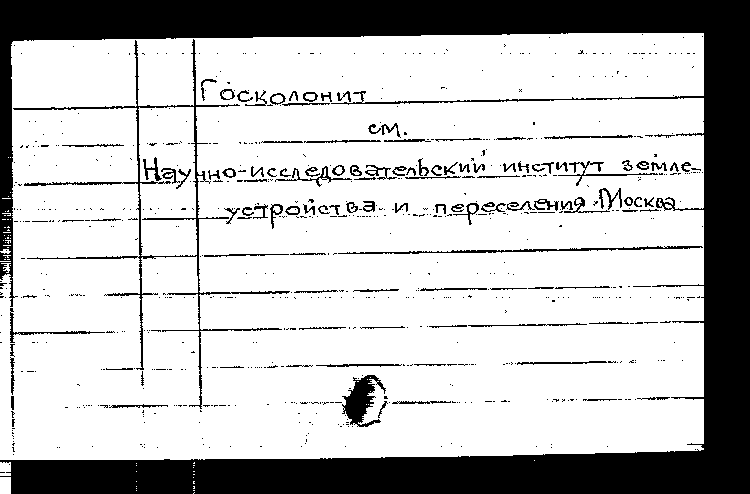 Госколонит
см.
Научно-исследовательский институт земле-
устройства и переселения. Москва